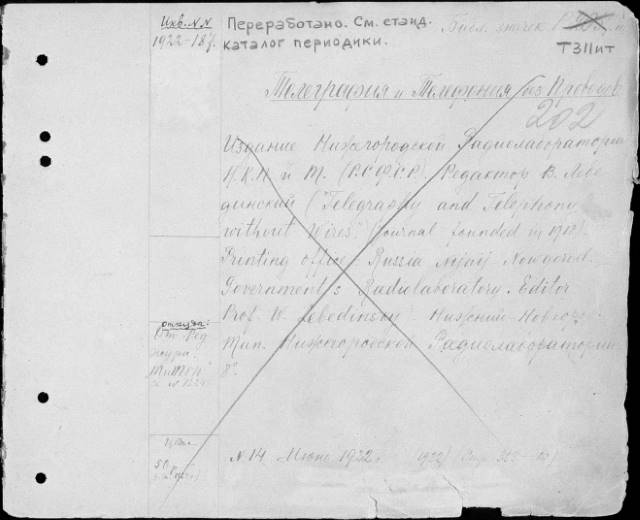 Инв. N.N
1922-187.
Переработано. См. станд.
каталог периодики.
Библ. значек
ТЗПит
Телеграфия и Телефония без Проводов
202
Издание Нижегородской Радиолаборатории
Н.К.П и Т. (Р.С.Ф.С.Р). Редактор В. Лебе
динский ("Telegraphy and Telephony
without Wires". (Journal founded in 1918).
Printing office, Russia Nijnij Nowgorod.
Government's Radiolaboratory. Editor
Prof. W. Lebedinsky. Нижний-Новгород.
Тип. Нижегородской Радиолаборатории
8°.
откуда:
От Ред
журн.
Цена
50
N 14 Июнь 1922 г. 1922